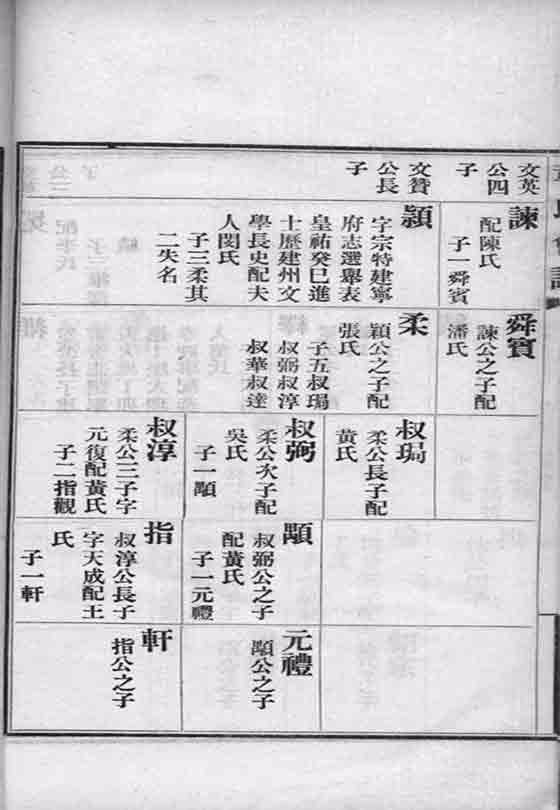 文英
公四
子
文贊
公長
子
諫
配陳氏
子一舜賓
頴
字宗特建寧
府志選舉表
皇祐癸巳進
士歷建州文
學長史配夫
人閔氏
子三柔其
二失名
舜賓
諫公之子配
潘氏
柔
穎公之子配
張氏
子五叔瑒
叔弼叔淳
叔華叔達
叔瑒
柔公長子配
黃氏
叔弼
柔公次子配
吳氏
子一顒
叔淳
柔公三子字
元復配黃氏
子二指觀
顒
叔弼公之子
配黃氏
子一元禮
指
叔淳公長子
字天成配王
氏
子一軒
元禮
顒公之子
軒
指公之子